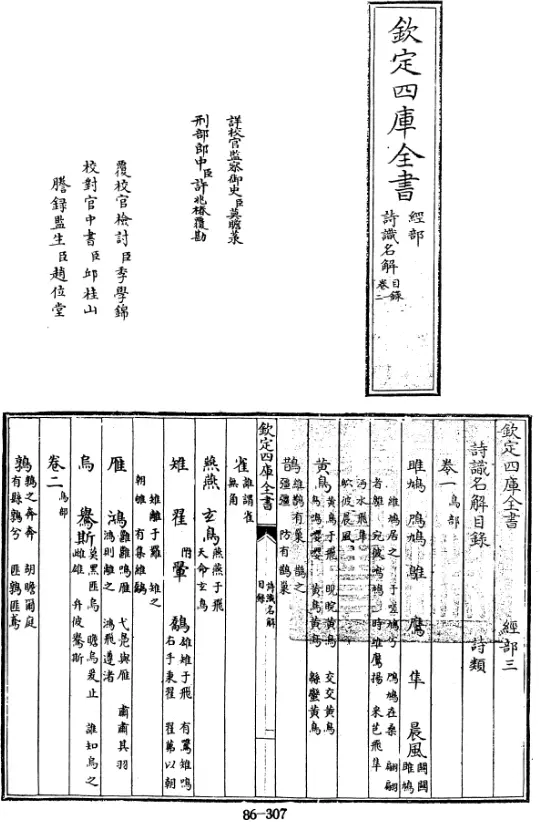 欽定四庫全書
經部
詩識名解
目錄
卷二
詳校官監察御史臣莫瞻菉
刑部郎中臣許兆椿覆勘
覆校官檢討臣李學錦
校對官中書臣邱桂山
謄錄監生臣趙位堂
欽定四庫全書 經部三
詩識名解目錄 詩類
卷一 鳥部
雎鳩 鳲鳩 鵻 鷹 隼 晨風 關關雎鳩
維鳩居之 于嗟鳩兮 鳲鳩在桑 翩翩
者鵻 宛彼鳴鳩 時維鷹揚 采芑飛隼
沔水飛隼
鴥彼晨風
黃鳥 黃鳥于飛 睍睆黃鳥 交交黃鳥
鳥鳴嚶嚶 黃鳥黃鳥 緜蠻黃鳥
鵲 維鵲有巢 鵲之
彊彊 防有鵲巢
欽定四庫全書
詩識名解
目錄
雀 誰謂雀
無角
燕燕 玄鳥 燕燕于飛
天命玄鳥
雉 翟 翬 鷮 雄雉于飛 有鷕雉鳴
右手秉翟 翟茀以朝
雉離于羅 雉之
朝雊 有集維鷮
雁 鴻 雝雝鳴雁 弋鳧與雁 肅肅其羽
鴻則離之 鴻飛遵渚
烏 鸒斯 莫黑匪烏 瞻烏爰止 誰知烏之
雌雄 弁彼鸒斯
卷二 鳥部
鶉 鶉之奔奔 胡瞻爾庭
有縣鶉兮 匪鶉匪鳶
86-307